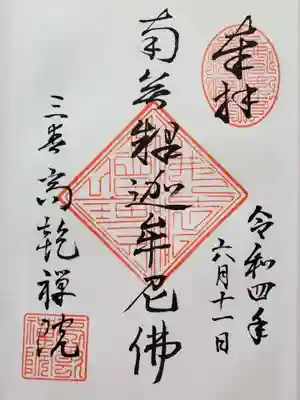 奉拝
令和四年
六月十一日
南無釋迦牟尼佛
高乾禅院